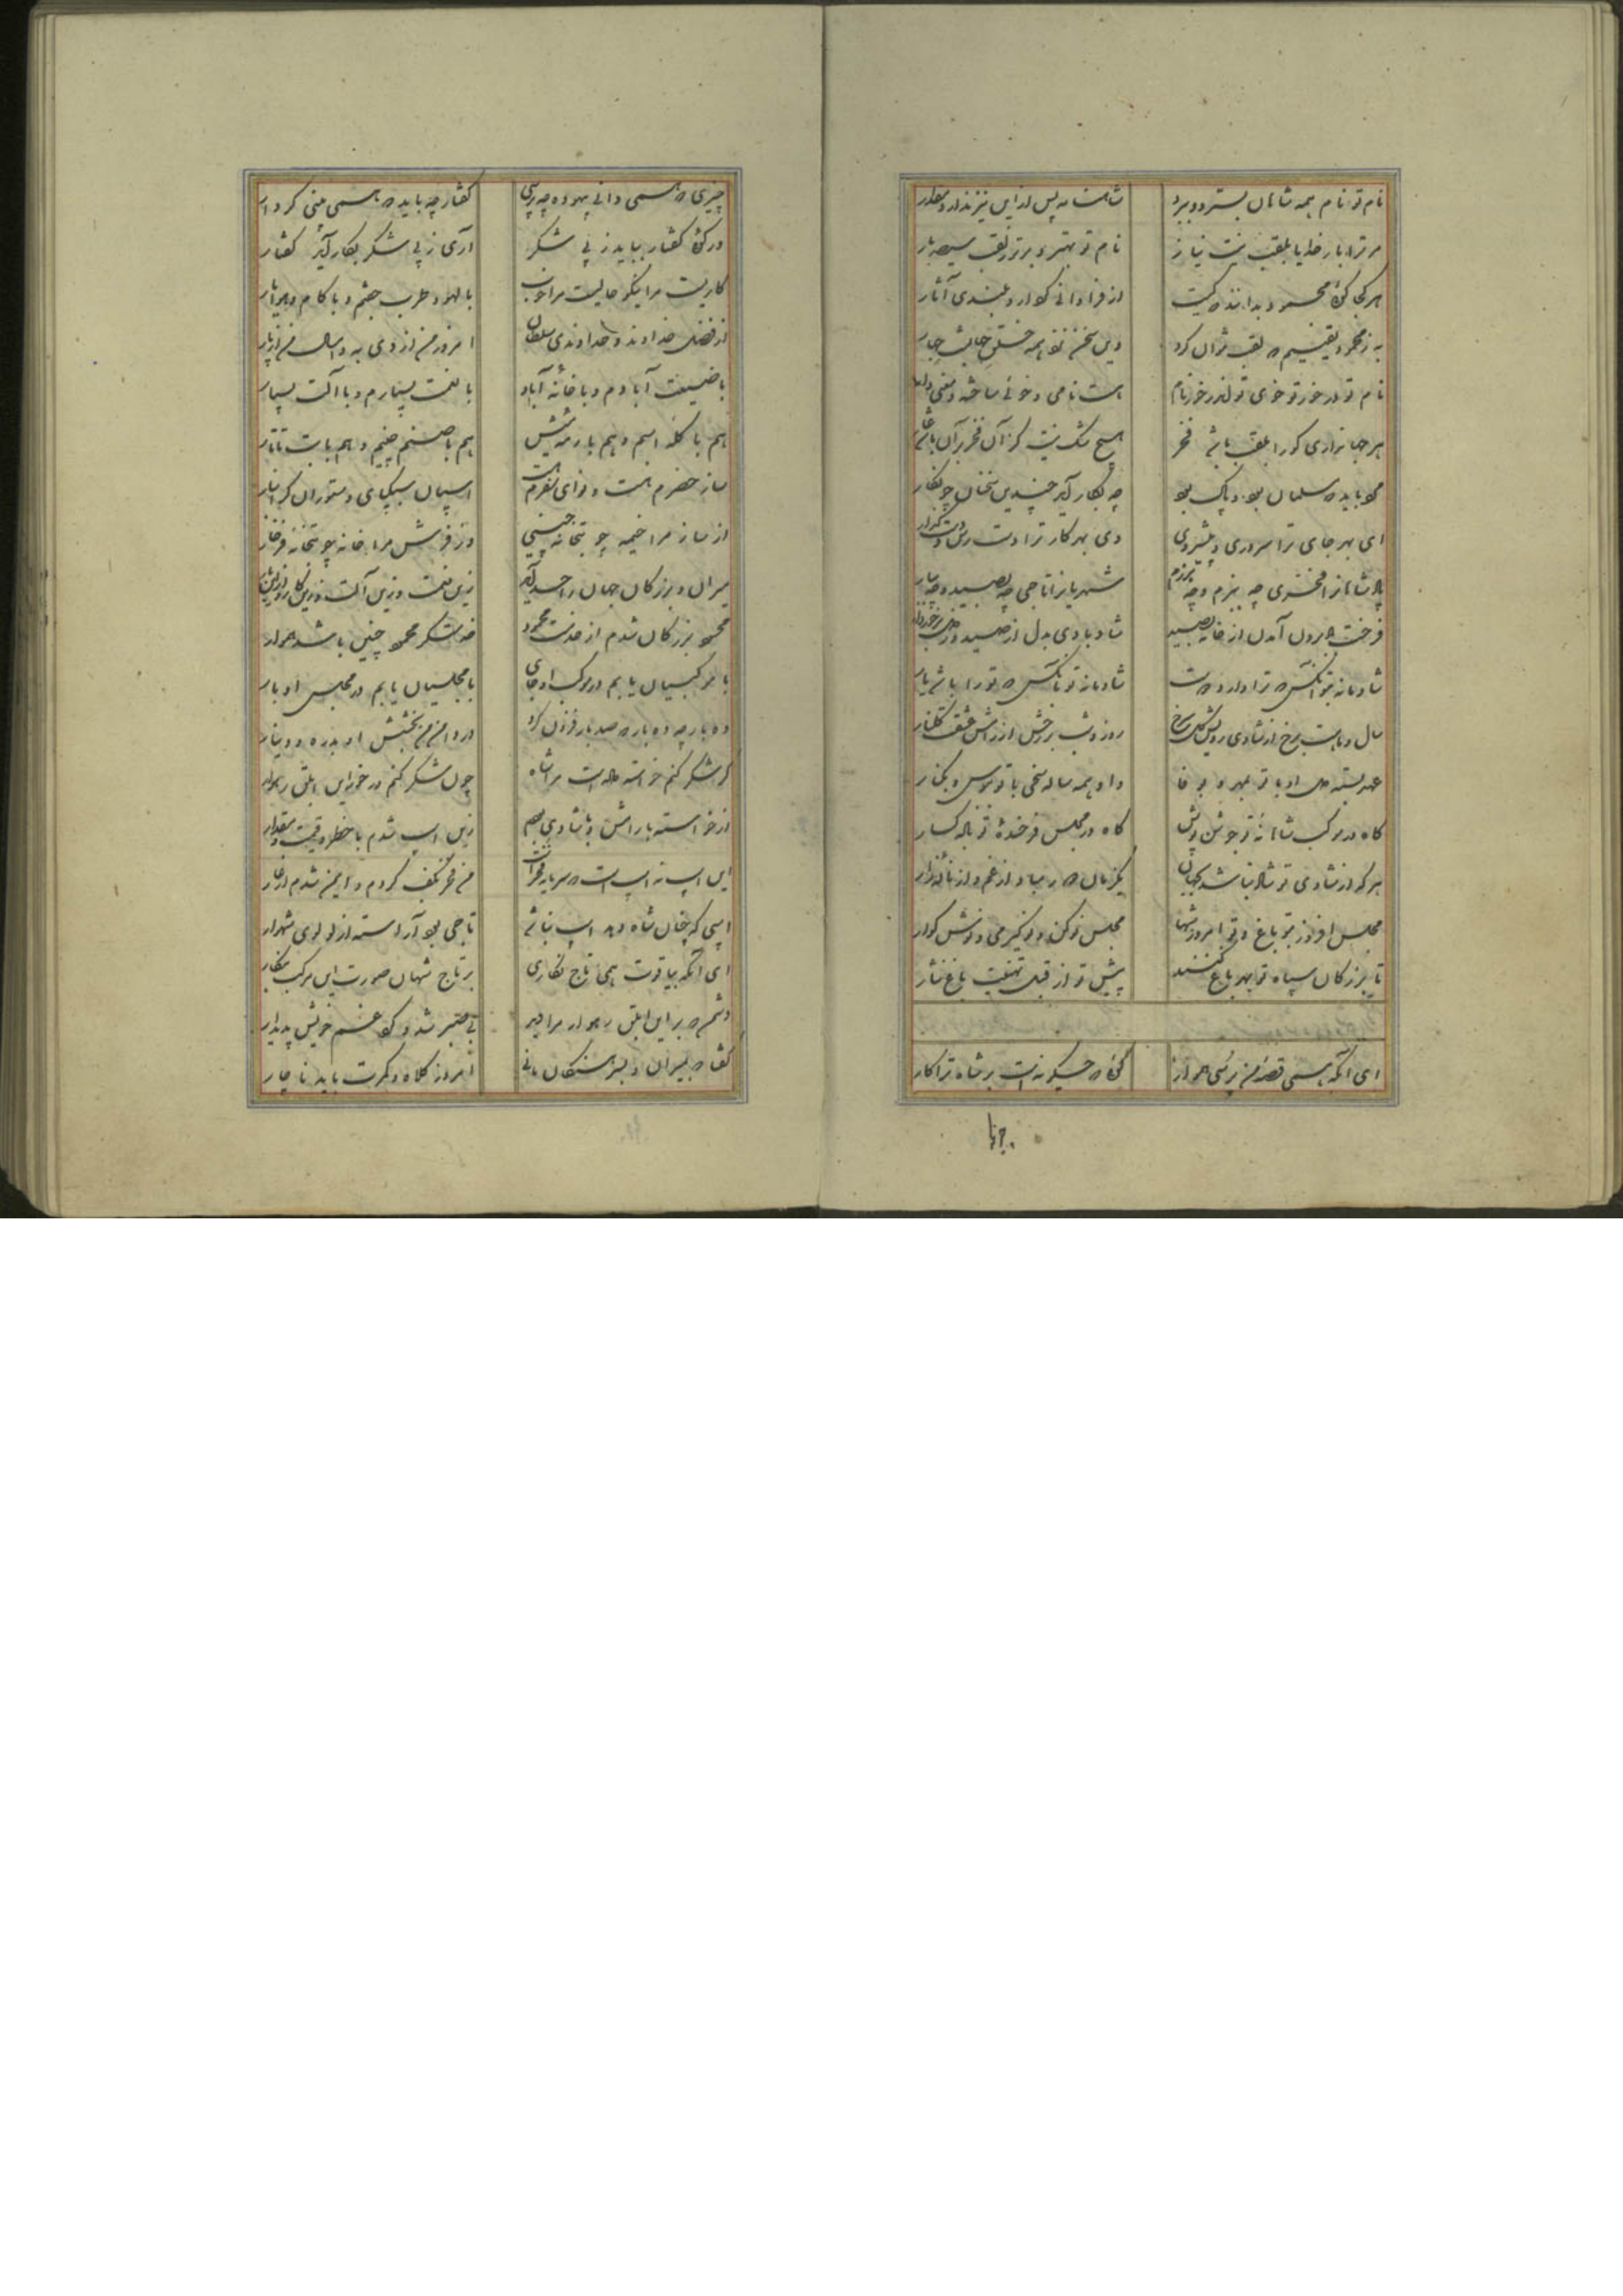 نام تو نام همه شاهان بسترد و ببرد شاهنامه پس ازین نیز ندارد مقدار
مر ترا بار خدایا بلقب نیست نیاز نام تو بهتر و برتر ز لقب سیصد بار
هر کجا گوئی محمود بدانند که کیست از فراوانی کردار و بلندی آثار
به ز محمود یقینم که لقب نتوان کرد وین سخن نزد همه خلق
نام تو در خور تو خوی تو اندر خور نام
هر جهانداری کو را بلقب باشد فخر هیچ شک نیست کز آن فخر بر آن باشد عار
مرد باید که سلمان بود و پاک بود چه بکار آید چندین سخنان چو نگار
ای بهر جای ترا سروری و پیشروی وی بهر کار ترا دست رس و دست گذار
پادشاهانرا فخری چه ببزم و چه برزم شهریارانرا تاجی چه بصید و چه ببار
فرخت باد برون آمدن از خانه بصید شاد بادی بدل از صید و ز دل برخوردار
شادمانه بتو آنکس که ترا دارد دوست شادمانه تو بآنکس که تو را باشد یار
سال و ماهست رخ از شادی رویش گل سرخ روز و شب بر رخش از آتش عشقت گلنار
عهد بسته دل او با تو بمهر و بوفا داد همه ساله سخی با تو ببوس و بکنار
گاه در موکب شاهانه تو جوشن پوش گاه در مجلس فرخنده تو باده گسار
هر که از شادی تو شاد نباشد بجهان یکزمان دور مباد از غم و از ناله زار
مجلس افروز بتو باغ و تو امروز شها مجلس نو کن و نو گیر می و نوش گوار
تا بزرگان سپاه تو بهر باغ کنند پیش تو از قبل تهنیت باغ نثار
ای آنکه همی قصه من پرسی هموار گوئی که چگونه است بر شاه ترا کار
چیزی که همی دانی بیهوده چه پرسی گفتار چه باید که همی بینی کردار
ور گوئی گفتار بباید ز پی شکر آری ز پی شکر بکار آید گفتار
کاریست مرا نیکو حالیست مرا خوب با لهو و طرب جفتم و با کام و هوا یار
از فضل خداوند و خداوندی سلطان امروز من از دی به و امسال من از پار
با ضیعت آبادم و با خانه آباد با نعمت بسیارم و با آلت بسیار
هم با گله اسبم و هم با رمه میش هم با صنم چینم و هم با بت تاتار
ساز حضرم هست و نوای سفرم هست اسبان سبکپای و ستوران گرانبار
از ساز مرا خیمه چو بتخانه چینی وز فرش مرا خانه چو بتخانه فرخار
میران و بزرگان جهان را حسد آید زین نعمت و زین آلت و زین کار و ازین بار
محسود بزرگان شدم از خدمت محمود خدمتگر محمود چنین باشد هموار
با موکبیان یابم در موکب او جای با مجلسیان یابم در مجلس او بار
ده بار چه ده بار که صد بار فزون کرد در دامن من بخشش او بدره و دینار
گر شکر کنم خواسته داده است مرا شاه چون شکر کنم در خور این ابلق رهوار
از خواسته با رامش و با شادی بودم زین اسب شدم با خطر و قیمت و مقدار
این اسب نه اسب است که سرمایه فخر است من فخر بکف کردم و ایمن شدم از عار
اسبی که چنان شاه دهد اسب نباشد تاجی بود آراسته از لولوی شهوار
ای آنکه بیاقوت همی تاج نگاری بر تاج شهان صورت این مرکب بنگار
دشمن که بر این ابلق رهوار مرا دید بی صبر شد و کرد غم خویش پدیدار
گفتا که بمیران و بسرهنگان مانی امروز کلاه و کمرت باید ناچار